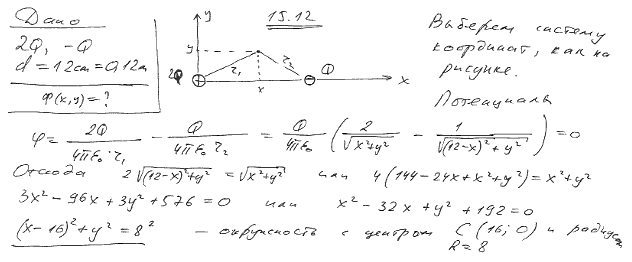 Дано
2Q, -Q
d = 12см = 0,12м
φ(x,y) = ?
15.12
y
y
r₁
r₂
2Q
Q
x
x
Выберем систему
координат, как на
рисунке.
Потенциал
φ = 2Q/(4πε₀·r₁) - Q/(4πε₀ r₂) = Q/(4πε₀) (2/√(x²+y²) - 1/√((12-x)²+y²)) = 0
Отсюда 2√((12-x)²+y²) = √(x²+y²) или 4(144-24x+x²+y²) = x²+y²
3x² - 96x + 3y² + 576 = 0 или x² - 32x + y² + 192 = 0
(x-16)² + y² = 8² - окружность с центром C (16; 0) и радиусом
R = 8